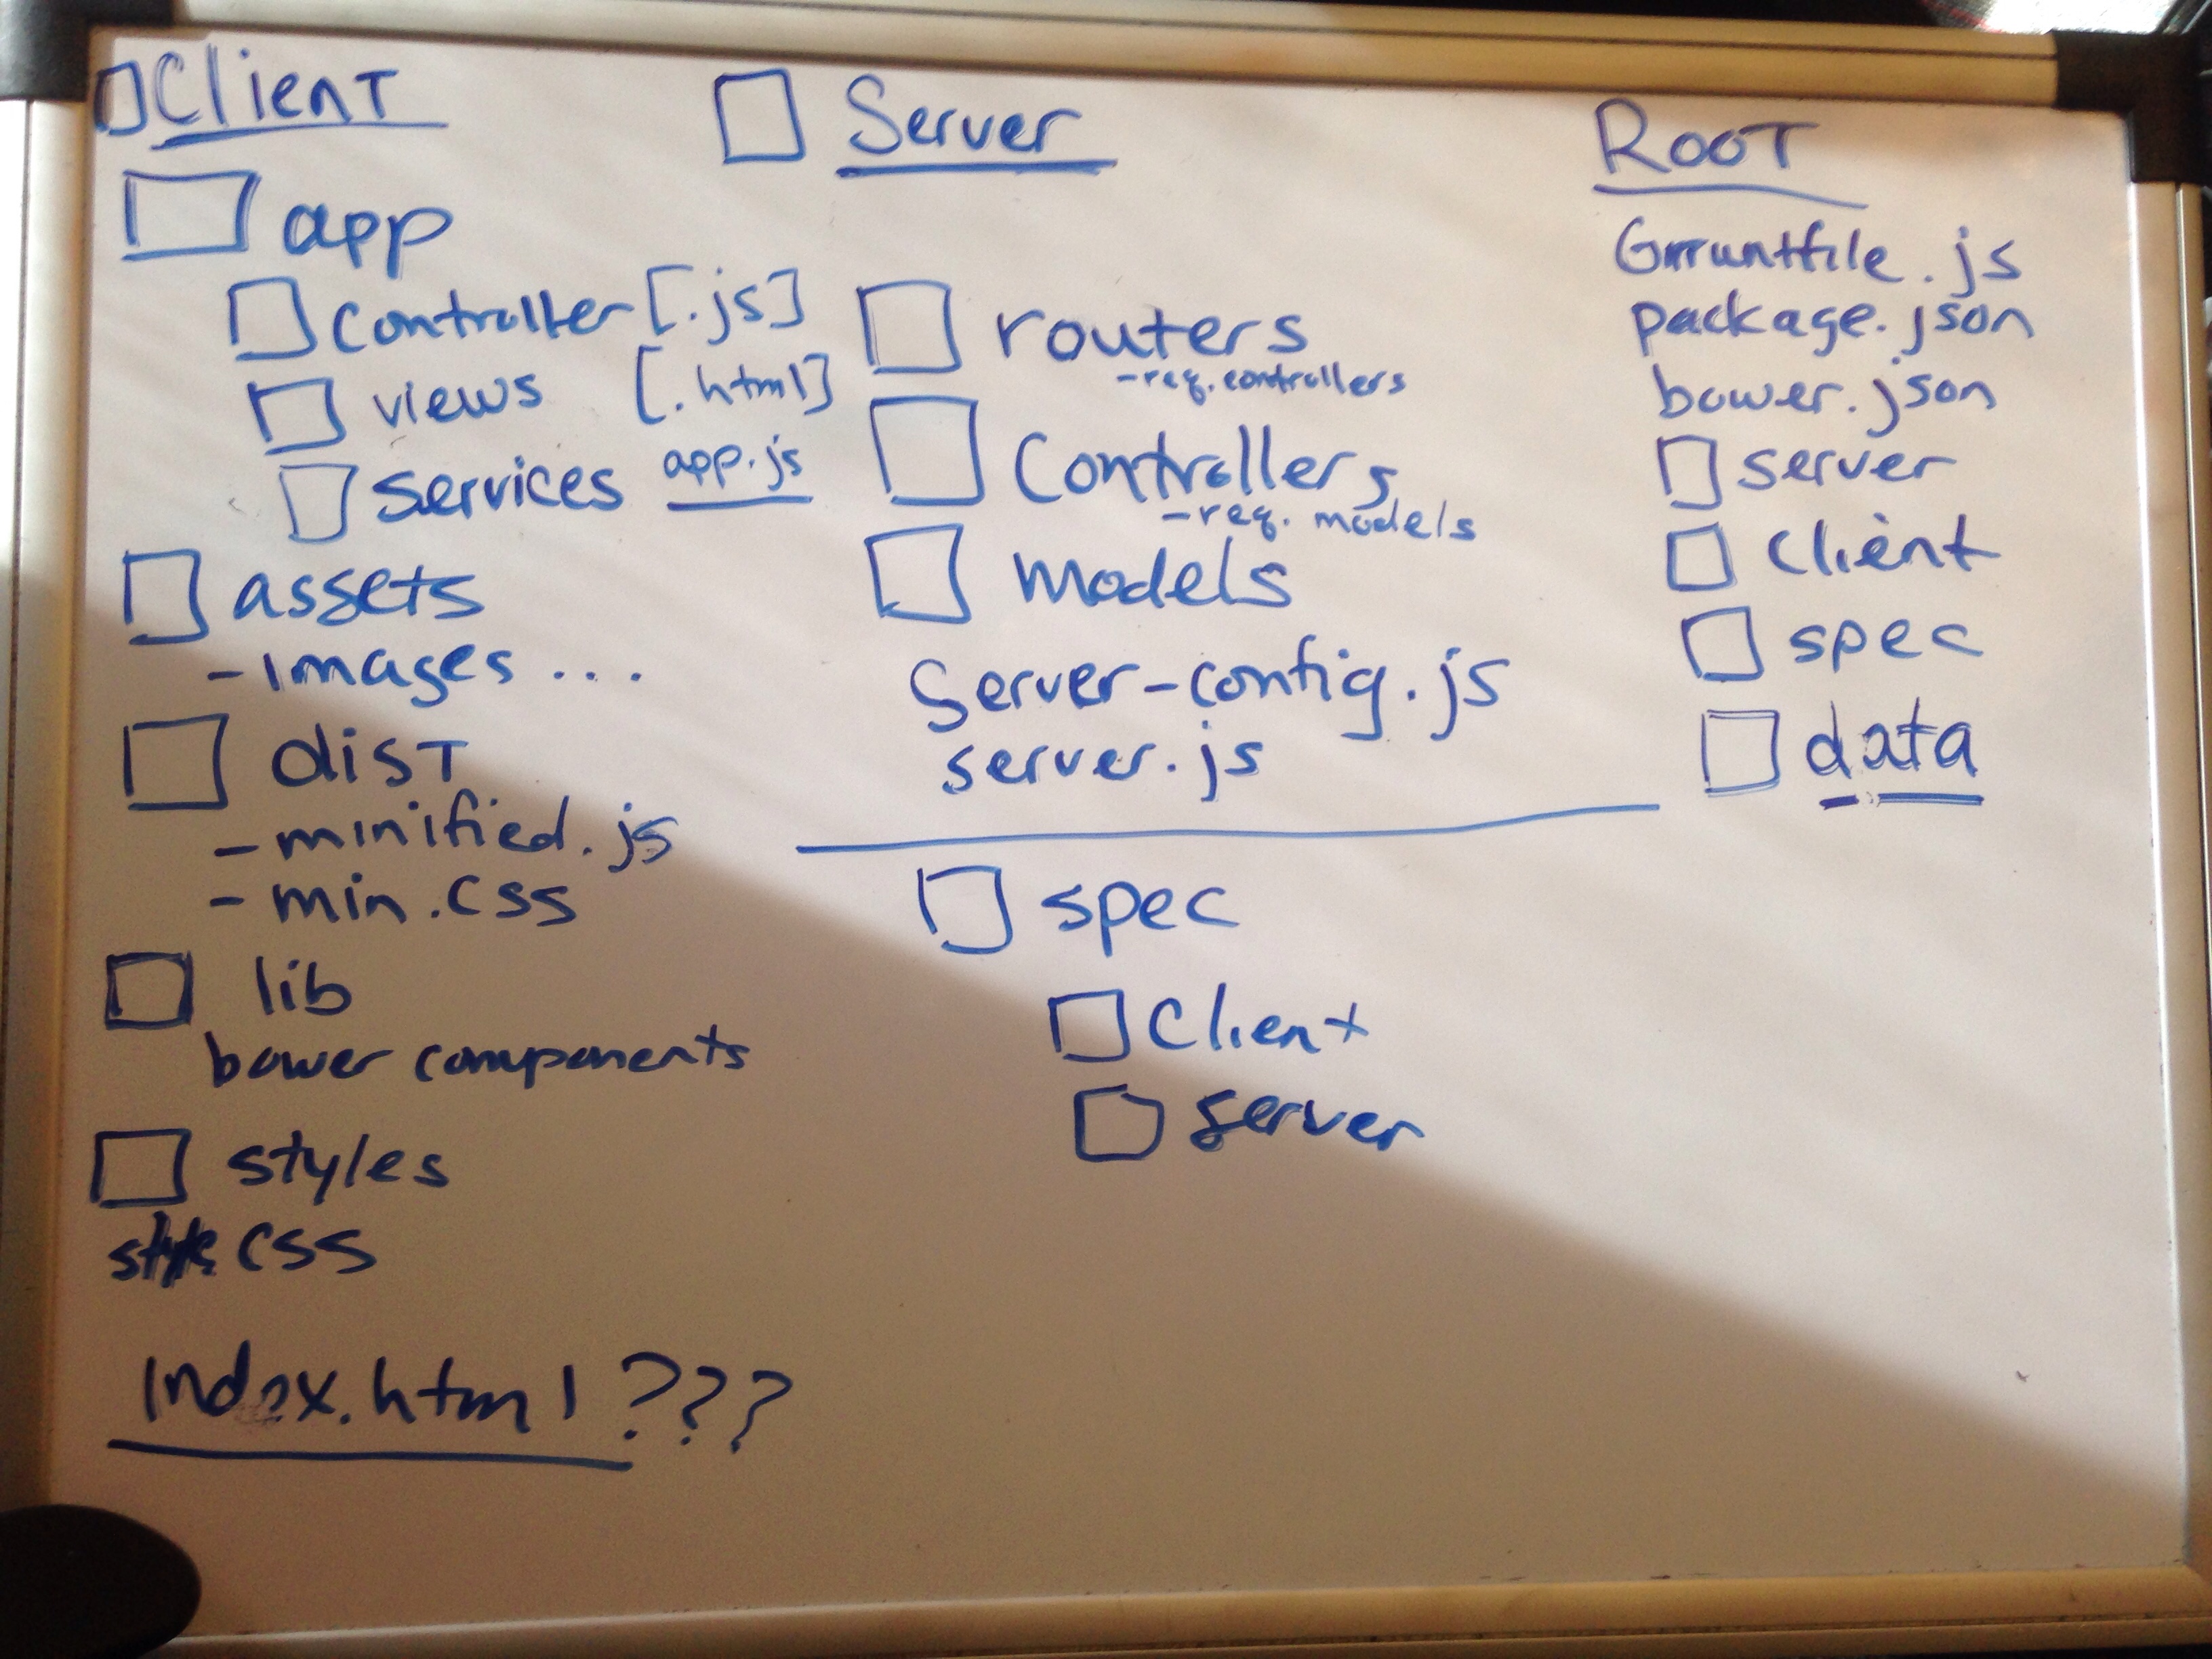 Client
app
controller [.js]
views [.html]
services app.js
assets
- images ...
dist
- minified.js
- min.css
lib
bower components
styles
style css
index.html ???
Server
routers
- req. controllers
Controllers
- req. models
models
Server-config.js
server.js
spec
Client
server
ROOT
Grruntfile.js
package.json
bower.json
server
client
spec
data